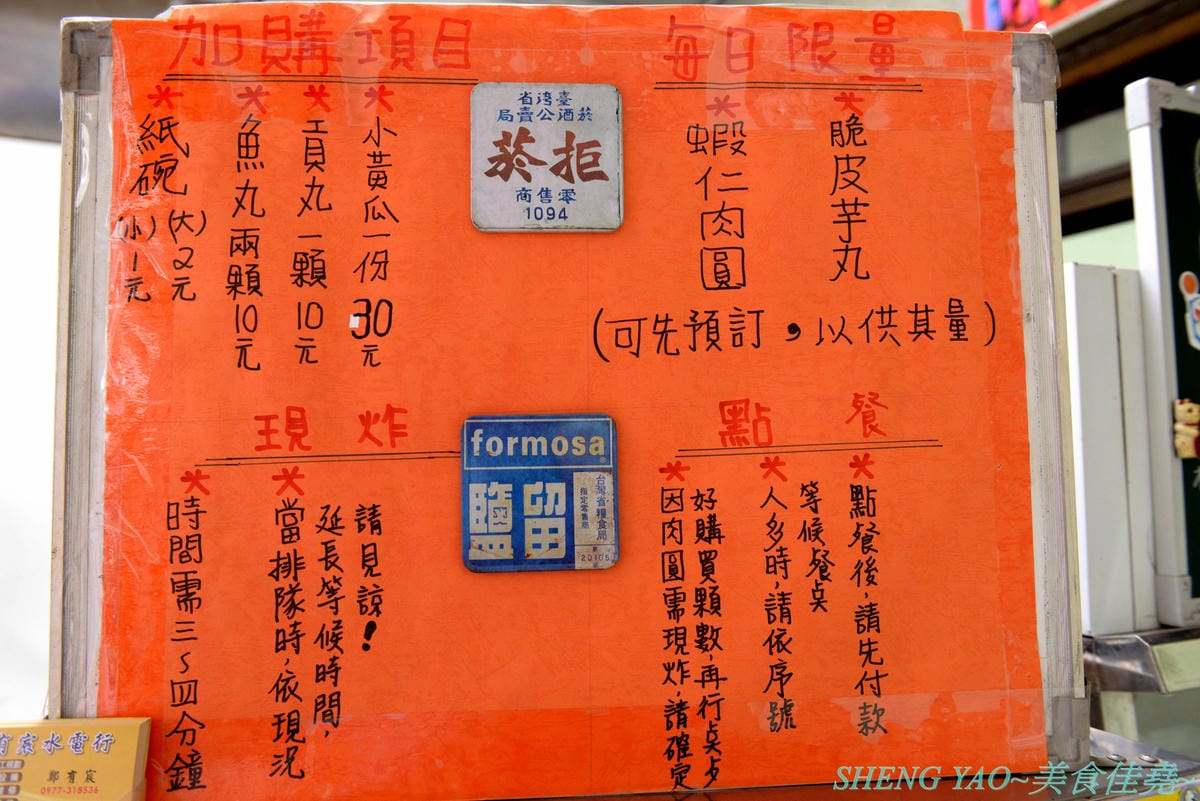 加購項目
*紙碗(大)2元
(小)1元
*魚丸兩顆10元
*貢丸一顆10元
*小黃瓜一份30元
臺灣省
菸酒公賣局
拒菸
零售商
1094
每日限量
*脆皮芋丸
*蝦仁肉圓
(可先預訂,以供其量)
現炸
*時間需三~四分鐘
*當排隊時,依現況
延長等候時間,
請見諒!
formosa
留鹽
台灣省糧食局
指定零售商
20105
點餐
*點餐後,請先付款
等候餐点
*人多時,請依序號
*因肉圓需現炸,請確定
好購買顆數,再行点
有宸水電行
鄭有宸
0977-318536
SHENG YAO~美食佳堯~